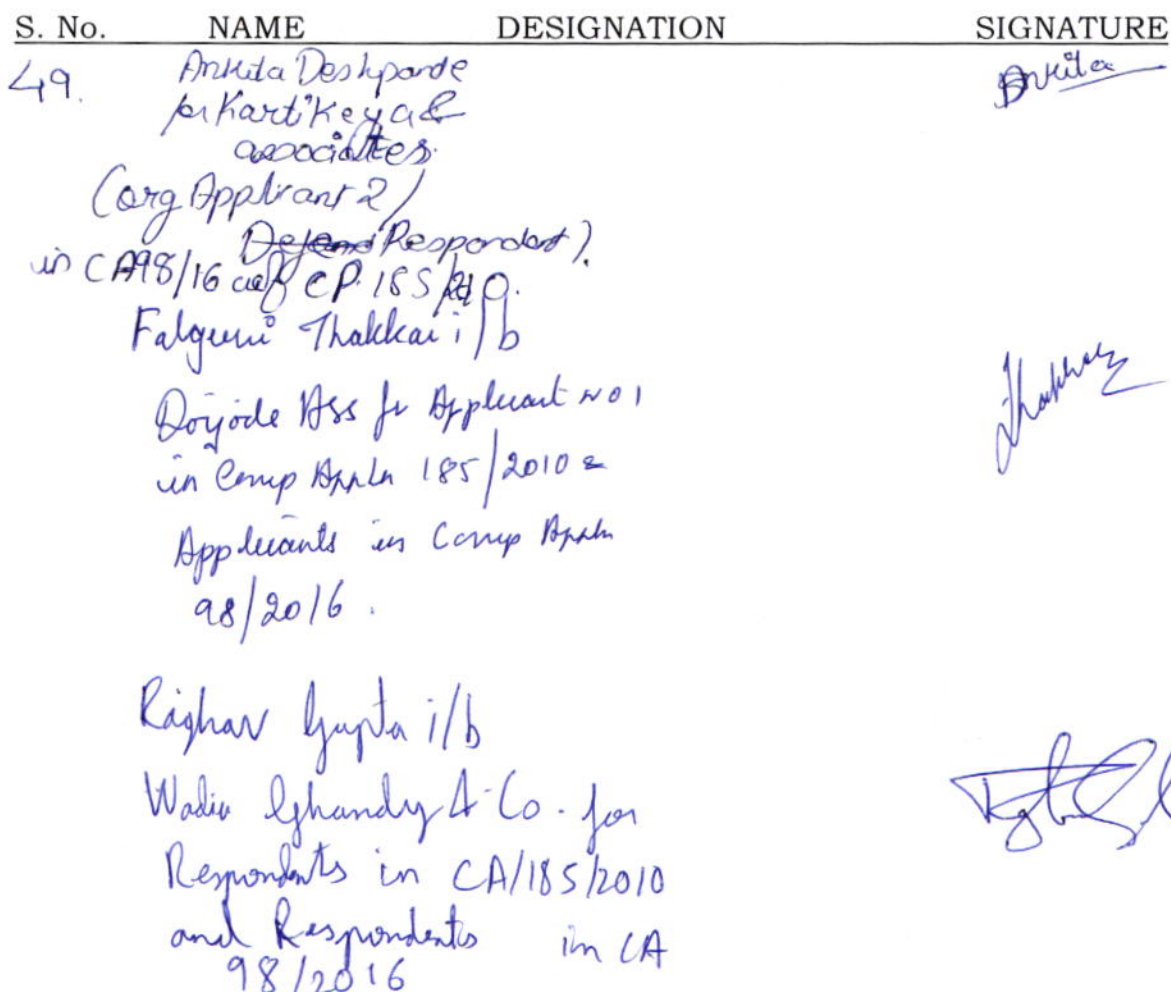 S. No. NAME DESIGNATION SIGNATURE
49. Ankita Deshpande Ankita
Kartikeya &
associates.
(org Applicant 2/
Respondent).
in CA98/16 CP. 185/
Falguni Thakkar i/b
Ass for Applicant no 1
in Comp Appln 185/2010 &
Applicants in Comp Appln
98/2016.
Raghav Gupta i/b
Wadia Ghandy & Co. for
Respondents in CA/185/2010
and Respondents in CA
98/2016